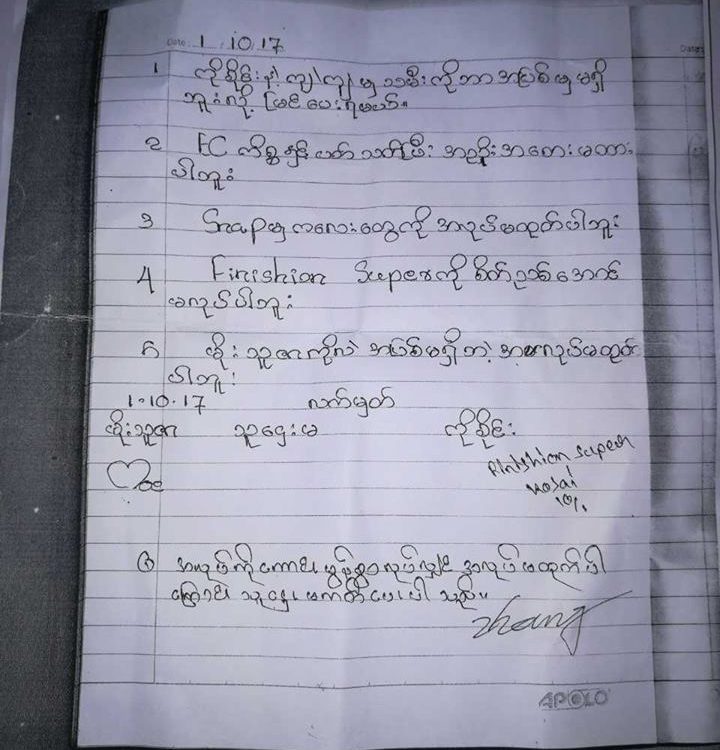 Date: 1.10.17
Date:
၁ ကိုစိုင်းနဲ့ ကျဲကျဲမှ သမီးကိုဘာအပြစ်မှမရှိ
ဘူးလို့ ဖြေပေးရမယ်။
၂ EC ကိစ္စနှင့်ပတ်သတ်ပြီး အငြိုးအတေးမထား
ပါဘူး
၃ Snapမှကလေးတွေကို အလုပ်မထုတ်ပါဘူး
၄ Finishion Superကို စိတ်ညစ်အောင်
မလုပ်ပါဘူး
၅ မိုးသူဇာကိုလဲ အပြစ်မရှိဘဲ အလုပ်မထုတ်
ပါဘူး
1.10.17 လက်မှတ်
မိုးသူဇာ သူဌေးမ ကိုစိုင်း
Moe
Finishion super
10%
၆ အလုပ်ကိုကောင်းမွန်စွာလုပ်လျှင် အလုပ်မထုတ်ပါ
ကြောင်း သူဌေးမကတိပေးပါသည်။
zhang
APOLO